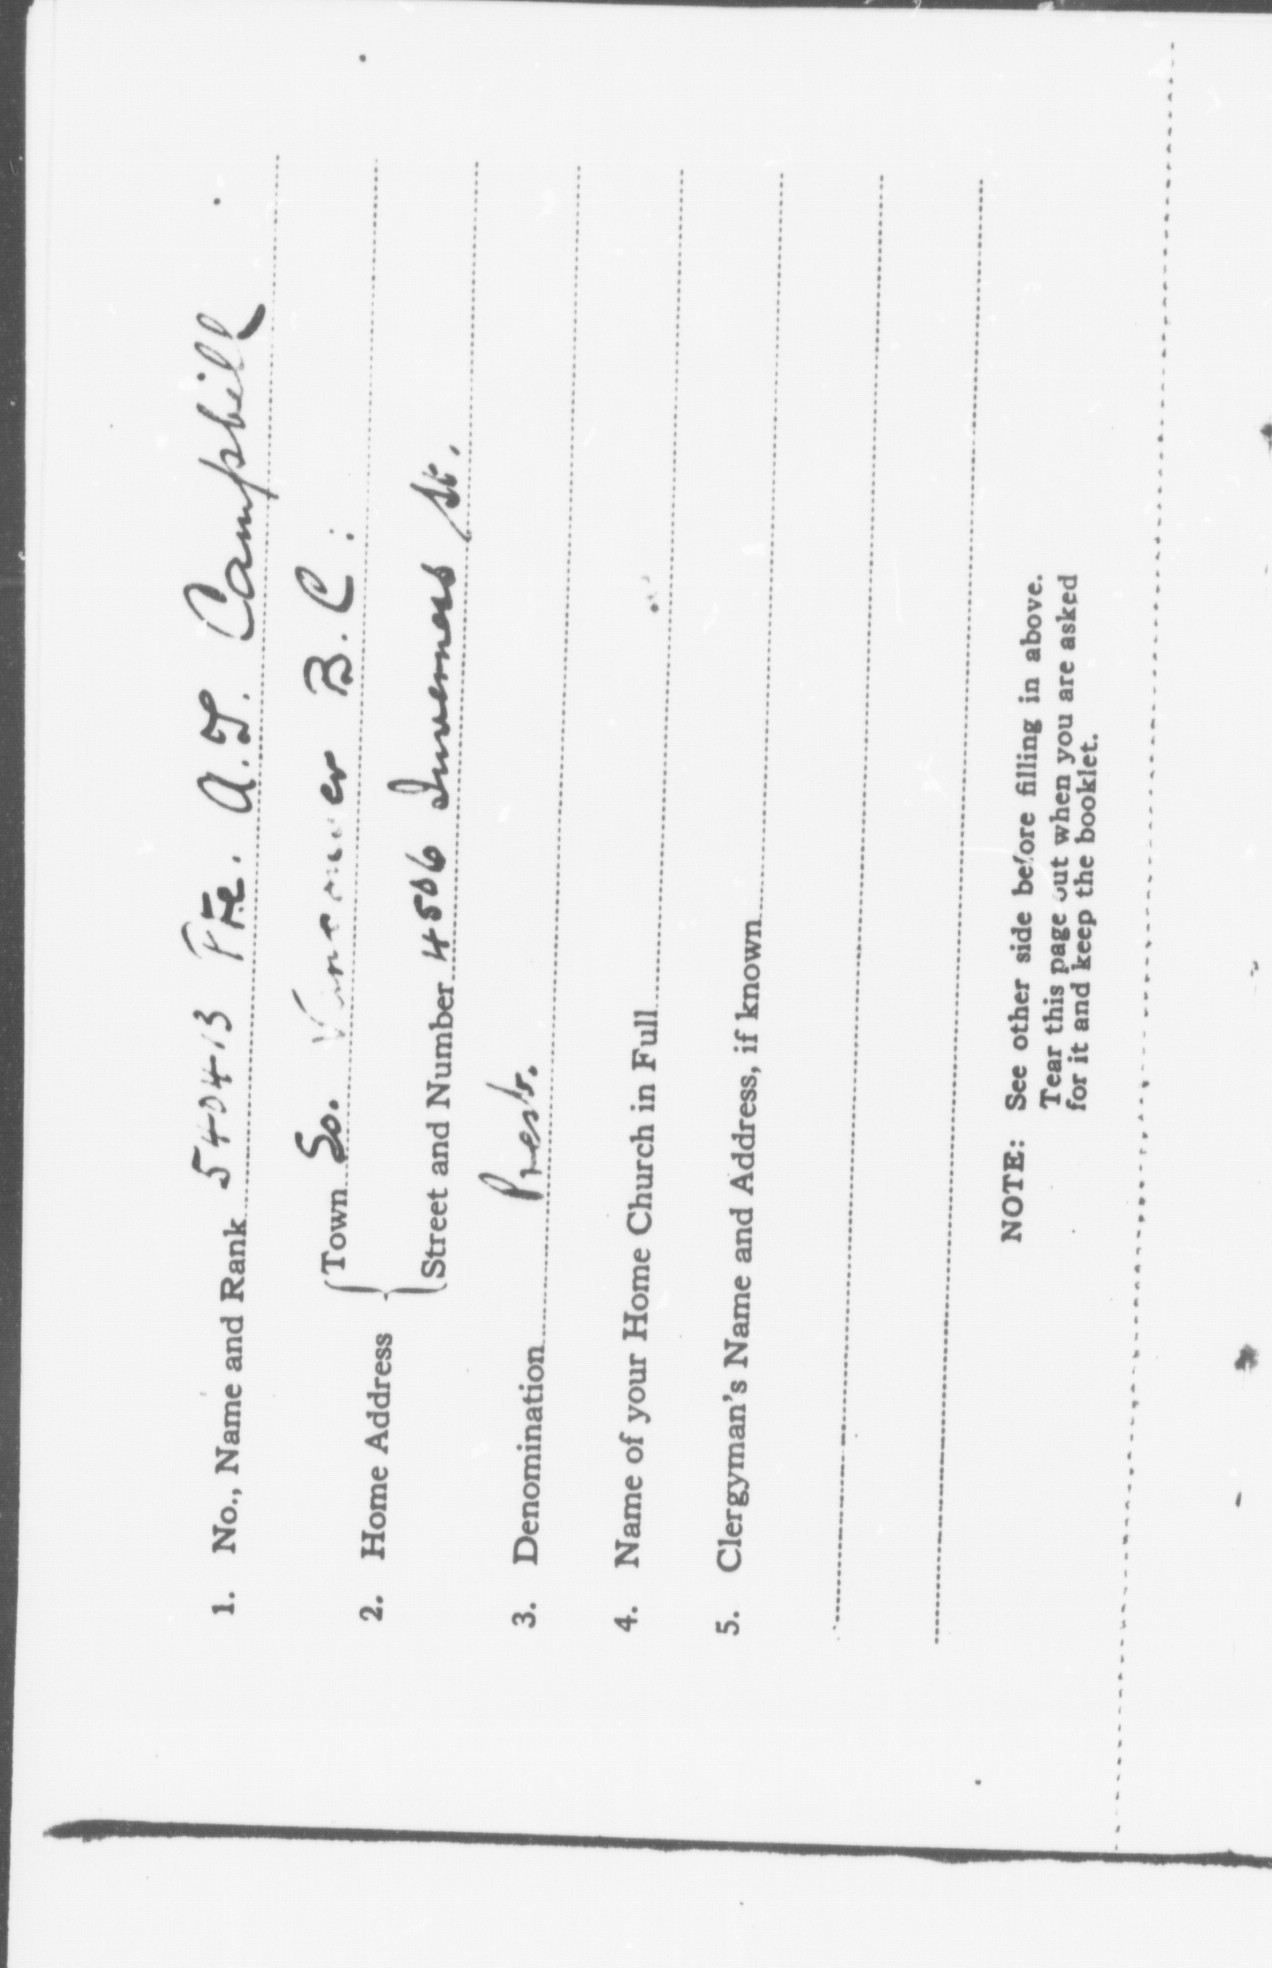 1. No., Name and Rank 540413 Pte. A.J. Campbell
2. Home Address { Town So. Vancouver B.C.
Street and Number 4506 Inverness St.
3. Denomination Presb.
4. Name of your Home Church in Full
5. Clergyman's Name and Address, if known
NOTE: See other side before filling in above.
Tear this page out when you are asked
for it and keep the booklet.